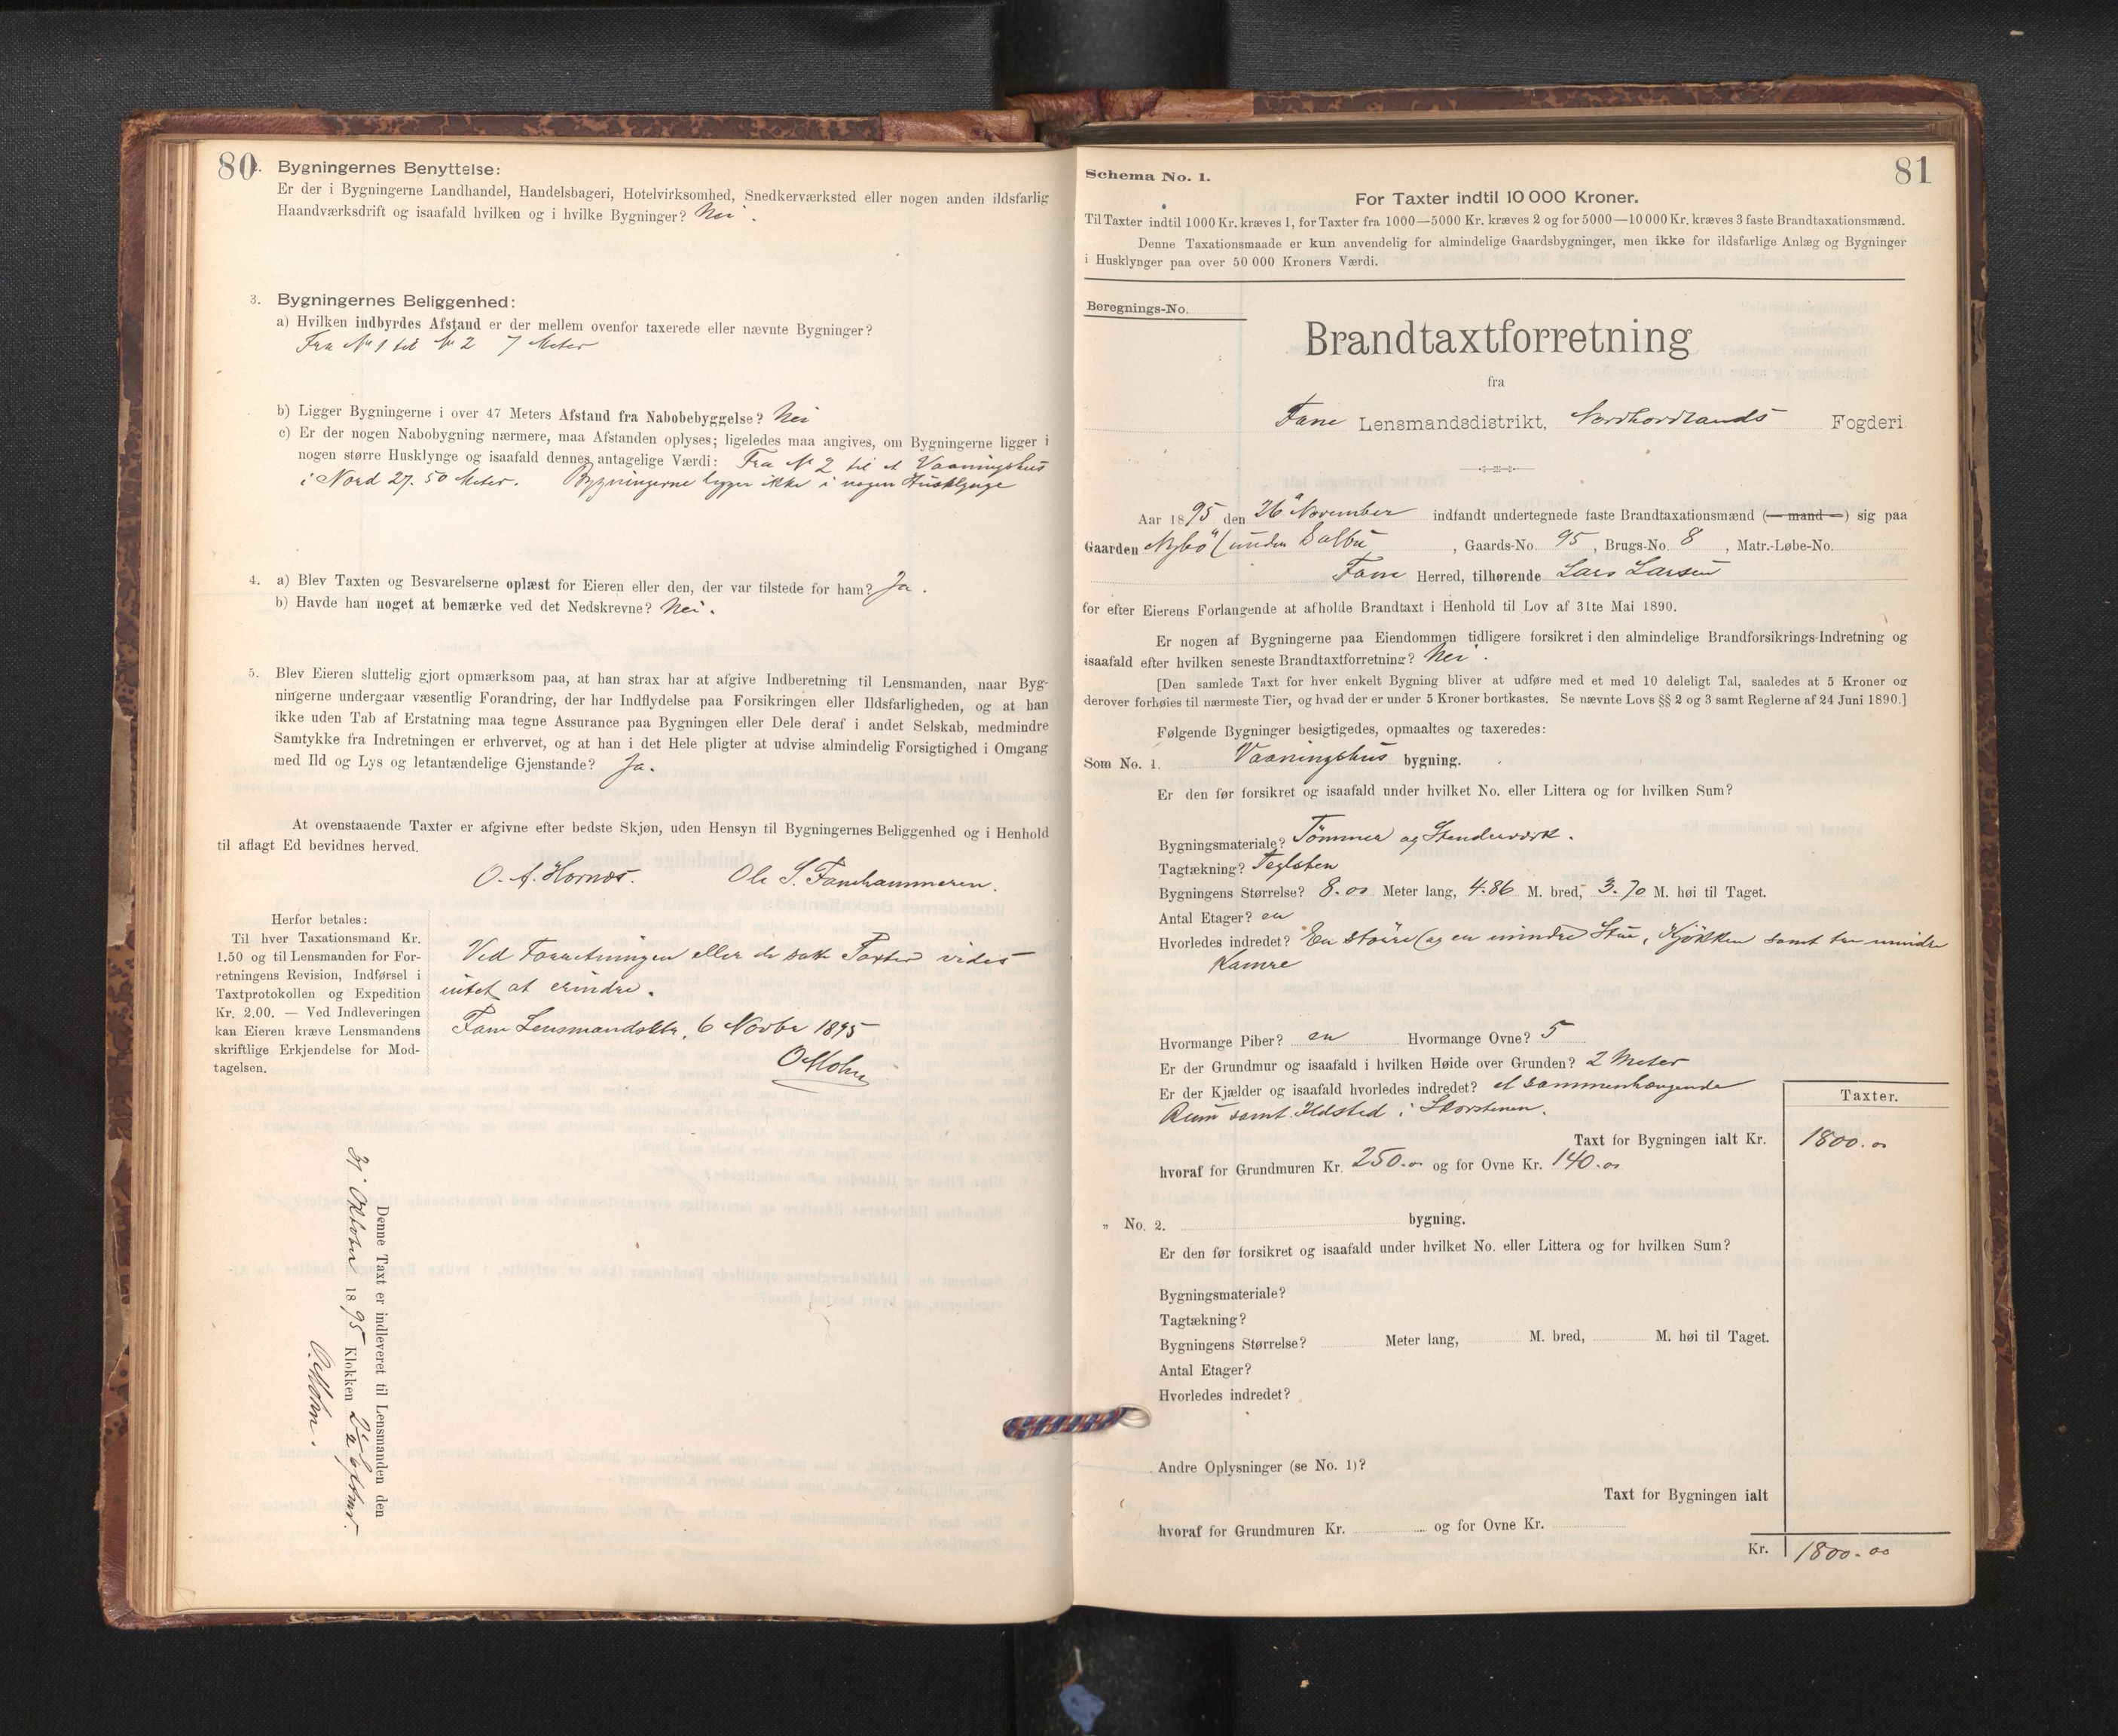 80
2. Bygningernes Benyttelse:
Er der i Bygningerne Landhandel, Handelsbageri, Hotelvirksomhed, Snedkerværksted eller nogen anden ildsfarlig
Haandværksdrift og isaafald hvilken og i hvilke Bygninger? Nei.
3. Bygningernes Beliggenhed:
a) Hvilken indbyrdes Afstand er der mellem ovenfor taxerede eller nævnte Bygninger?
Fra No 1 til No 2 7 Meter
b) Ligger Bygningerne i over 47 Meters Afstand fra Nabobebyggelse? Nei
c) Er der nogen Nabobygning nærmere, maa Afstanden oplyses; ligeledes maa angives, om Bygningerne ligger i
nogen større Husklynge og isaafald dennes antagelige Værdi: Fra No 2 til et Vaaningshus
i Nord 27.50 Meter. Bygningerne ligger ikke i nogen Husklynge
4. a) Blev Taxten og Besvarelserne oplæst for Eieren eller den, der var tilstede for ham? Ja.
b) Havde han noget at bemærke ved det Nedskrevne? Nei.
5. Blev Eieren sluttelig gjort opmærksom paa, at han strax har at afgive Indberetning til Lensmanden, naar Byg-
ningerne undergaar væsentlig Forandring, der har Indflydelse paa Forsikringen eller Ildsfarligheden, og at han
ikke uden Tab af Erstatning maa tegne Assurance paa Bygningen eller Dele deraf i andet Selskab, medmindre
Samtykke fra Indretningen er erhvervet, og at han i det Hele pligter at udvise almindelig Forsigtighed i Omgang
med Ild og Lys og letantændelige Gjenstande? Ja.
At ovenstaaende Taxter er afgivne efter bedste Skjøn, uden Hensyn til Bygningernes Beliggenhed og i Henhold
til aflagt Ed bevidnes herved.
O. A. Hornes. Ole S. Fanehammeren.
Herfor betales:
Til hver Taxationsmand Kr.
1.50 og til Lensmanden for For-
retningens Revision, Indførsel i
Taxtprotokollen og Expedition
Kr. 2.00. — Ved Indleveringen
kan Eieren kræve Lensmandens
skriftlige Erkjendelse for Mod-
tagelsen.
Ved Forretningen eller de satte Taxter vides
intet at erindre.
Fane Lensmandsktr. 6 Novbr 1895
O Mohn
Denne Taxt er indleveret til Lensmanden den
31 Oktober 1895 Klokken 2 Eftm.
O. Mohn.
81
Schema No. 1.
For Taxter indtil 10 000 Kroner.
Til Taxter indtil 1000 Kr. kræves 1, for Taxter fra 1000—5000 Kr. kræves 2 og for 5000—10 000 Kr. kræves 3 faste Brandtaxationsmænd.
Denne Taxationsmaade er kun anvendelig for almindelige Gaardsbygninger, men ikke for ildsfarlige Anlæg og Bygninger
i Husklynger paa over 50 000 Kroners Værdi.
Beregnings-No.
Brandtaxtforretning
fra
Fane Lensmandsdistrikt, Nordhordlands Fogderi
Aar 1895 den 26 November indfandt undertegnede faste Brandtaxationsmænd (— mand —) sig paa
Gaarden Nybö (under Dalbu, Gaards-No. 95, Brugs-No. 8, Matr.-Løbe-No.
Fane Herred, tilhørende Lars Larsen
for efter Eierens Forlangende at afholde Brandtaxt i Henhold til Lov af 31te Mai 1890.
Er nogen af Bygningerne paa Eiendommen tidligere forsikret i den almindelige Brandforsikrings-Indretning og
isaafald efter hvilken seneste Brandtaxtforretning? Nei.
[Den samlede Taxt for hver enkelt Bygning bliver at udføre med et med 10 deleligt Tal, saaledes at 5 Kroner og
derover forhøies til nærmeste Tier, og hvad der er under 5 Kroner bortkastes. Se nævnte Lovs §§ 2 og 3 samt Reglerne af 24 Juni 1890.]
Følgende Bygninger besigtigedes, opmaaltes og taxeredes:
Som No. 1. Vaaningshus bygning.
Er den før forsikret og isaafald under hvilket No. eller Littera og for hvilken Sum?
Bygningsmateriale? Tömmer og Stenderverk.
Tagtækning? Teglsten
Bygningens Størrelse? 8.00 Meter lang, 4.86 M. bred, 3.70 M. høi til Taget.
Antal Etager? en
Hvorledes indredet? En större (og en mindre) Stue, Kjökken samt tre mindre
Kamre
Hvormange Piber? en Hvormange Ovne? 5
Er der Grundmur og isaafald i hvilken Høide over Grunden? 2 Meter
Er der Kjælder og isaafald hvorledes indredet? et sammenhængende
Rum samt Ildsted i Skorstenen.
Taxter.
Taxt for Bygningen ialt Kr. 1800.00
hvoraf for Grundmuren Kr. 250.00 og for Ovne Kr. 140.00
„ No. 2. bygning.
Er den før forsikret og isaafald under hvilket No. eller Littera og for hvilken Sum?
Bygningsmateriale?
Tagtækning?
Bygningens Størrelse? Meter lang, M. bred, M. høi til Taget.
Antal Etager?
Hvorledes indredet?
Andre Oplysninger (se No. 1)?
Taxt for Bygningen ialt
hvoraf for Grundmuren Kr. og for Ovne Kr.
Kr. 1800.00